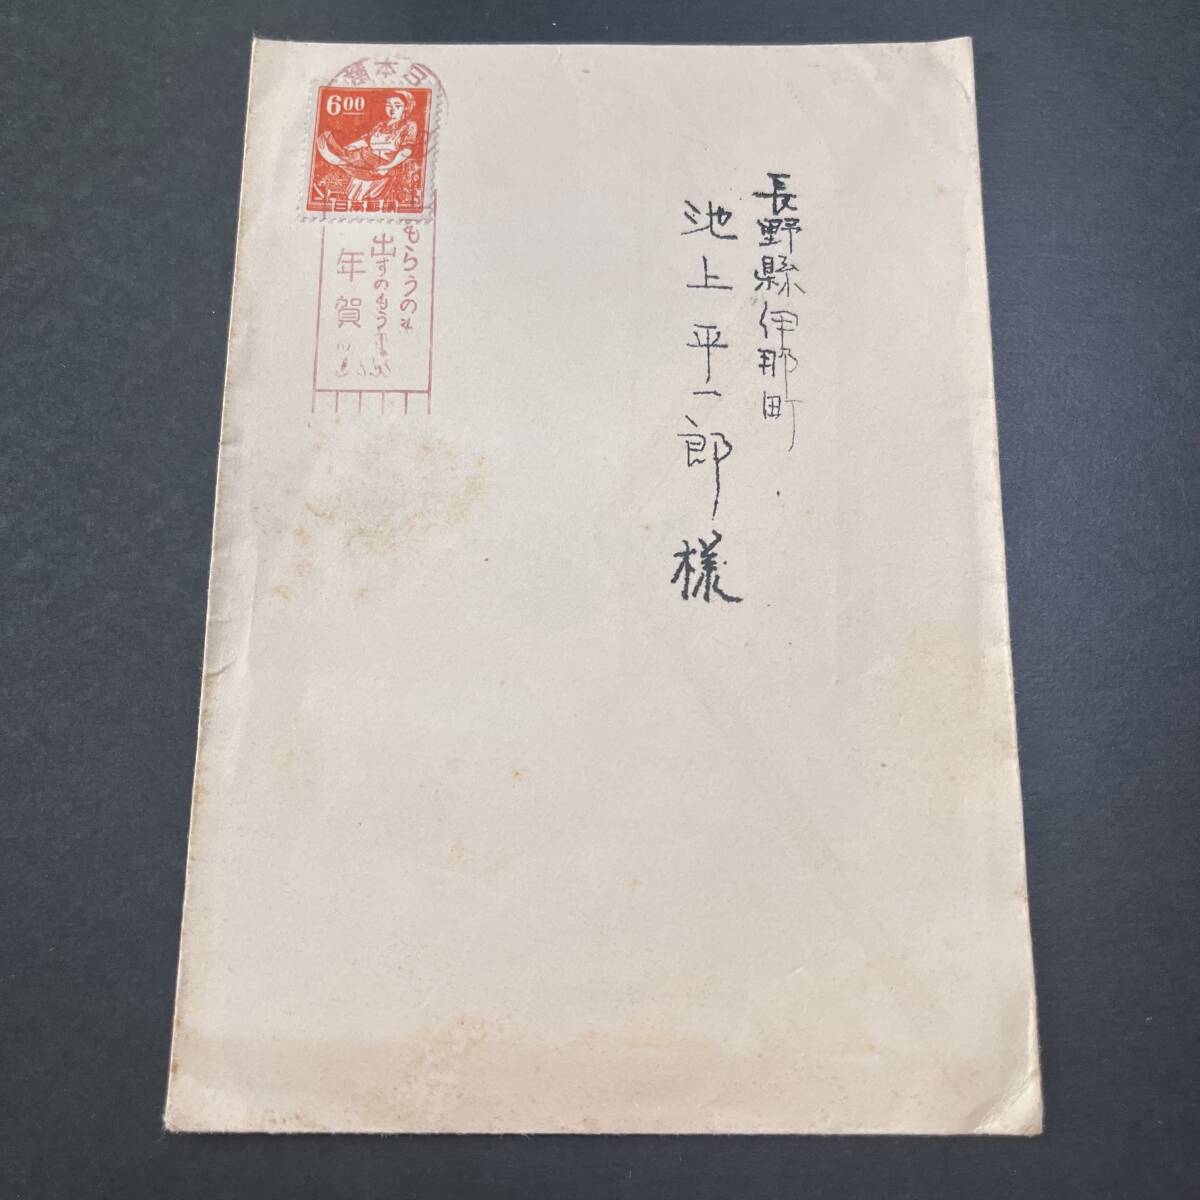 長野縣伊那町
池上平一郎様
日本橋
6.00
日本郵便
もらうのも
出すのもうれ
年賀